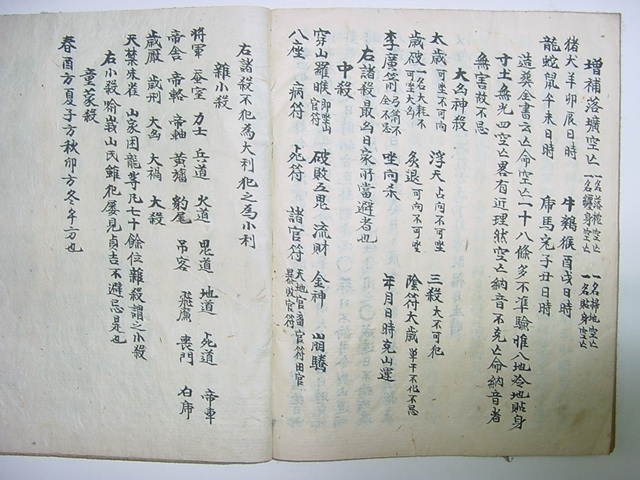 增補落壙空亡 一名落枕空亡 一名纏身空亡 一名掃地空亡 一名貼身空亡
猪犬羊卯辰日時 牛鷄猴酉戌日時
龍蛇鼠午未日時 虎馬兔子丑日時
造葬全書云亡命空亡一十八條多不準驗惟八地冷地貼身
寸土無光四空亡畧有近理然空亡納音不克亡命納音者
無害故不忌
大凶神殺
太歲 可坐不可向 浮天 占向不可坐 三殺 大不可犯
歲破 一名大耗不可坐大凶 灸退 可向不可坐 陰符太歲 單干不化不忌
李廣箭 弓箭不全不忌 坐向杀 年月日時克山運
右諸殺最凶日家所當避者也
中殺
穿山羅睺 即巡山官符 破敗五鬼 流財 金神
八座 病符 死符 諸官符 天地官畜官符田官
右諸殺不犯爲大利犯之爲小利
雜小殺
將軍 蚕室 力士 兵道 火道 鬼道 地道 死道 帝車
帝舍 帝輅 帝軸 黃旛 豹尾 吊客 飛廉 喪門 白虎
歲厭 歲刑 大凶 大禍 大殺
天禁朱雀 山家困龍等凡七十餘位雜殺謂之小殺
右小殺喻峩山民雖犯屢見貞吉不避忌是也
童蒙殺
春酉方夏子方秋卯方冬午方也